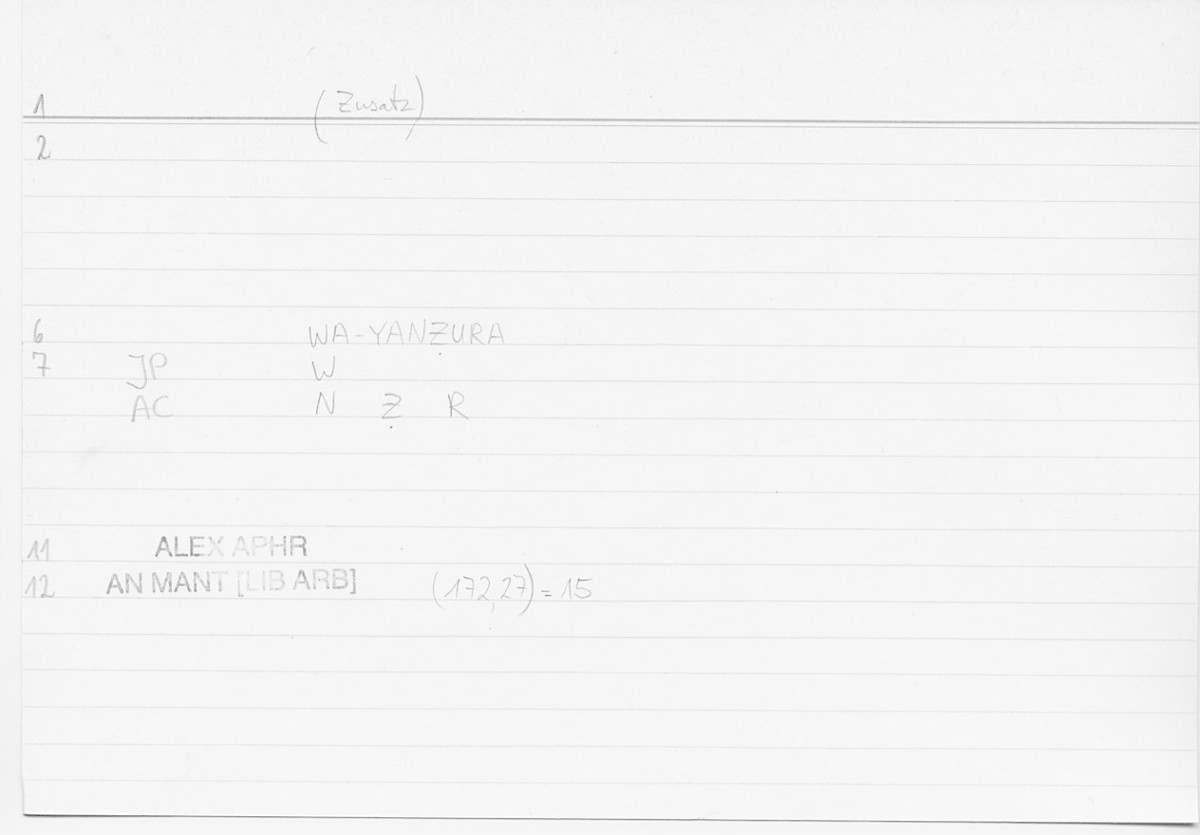 1 (Zusatz)
2
6 WA-YANẒURA
7 JP W
AC N Ẓ R
11 ALEX APHR
12 AN MANT [LIB ARB] (172,27) = 15